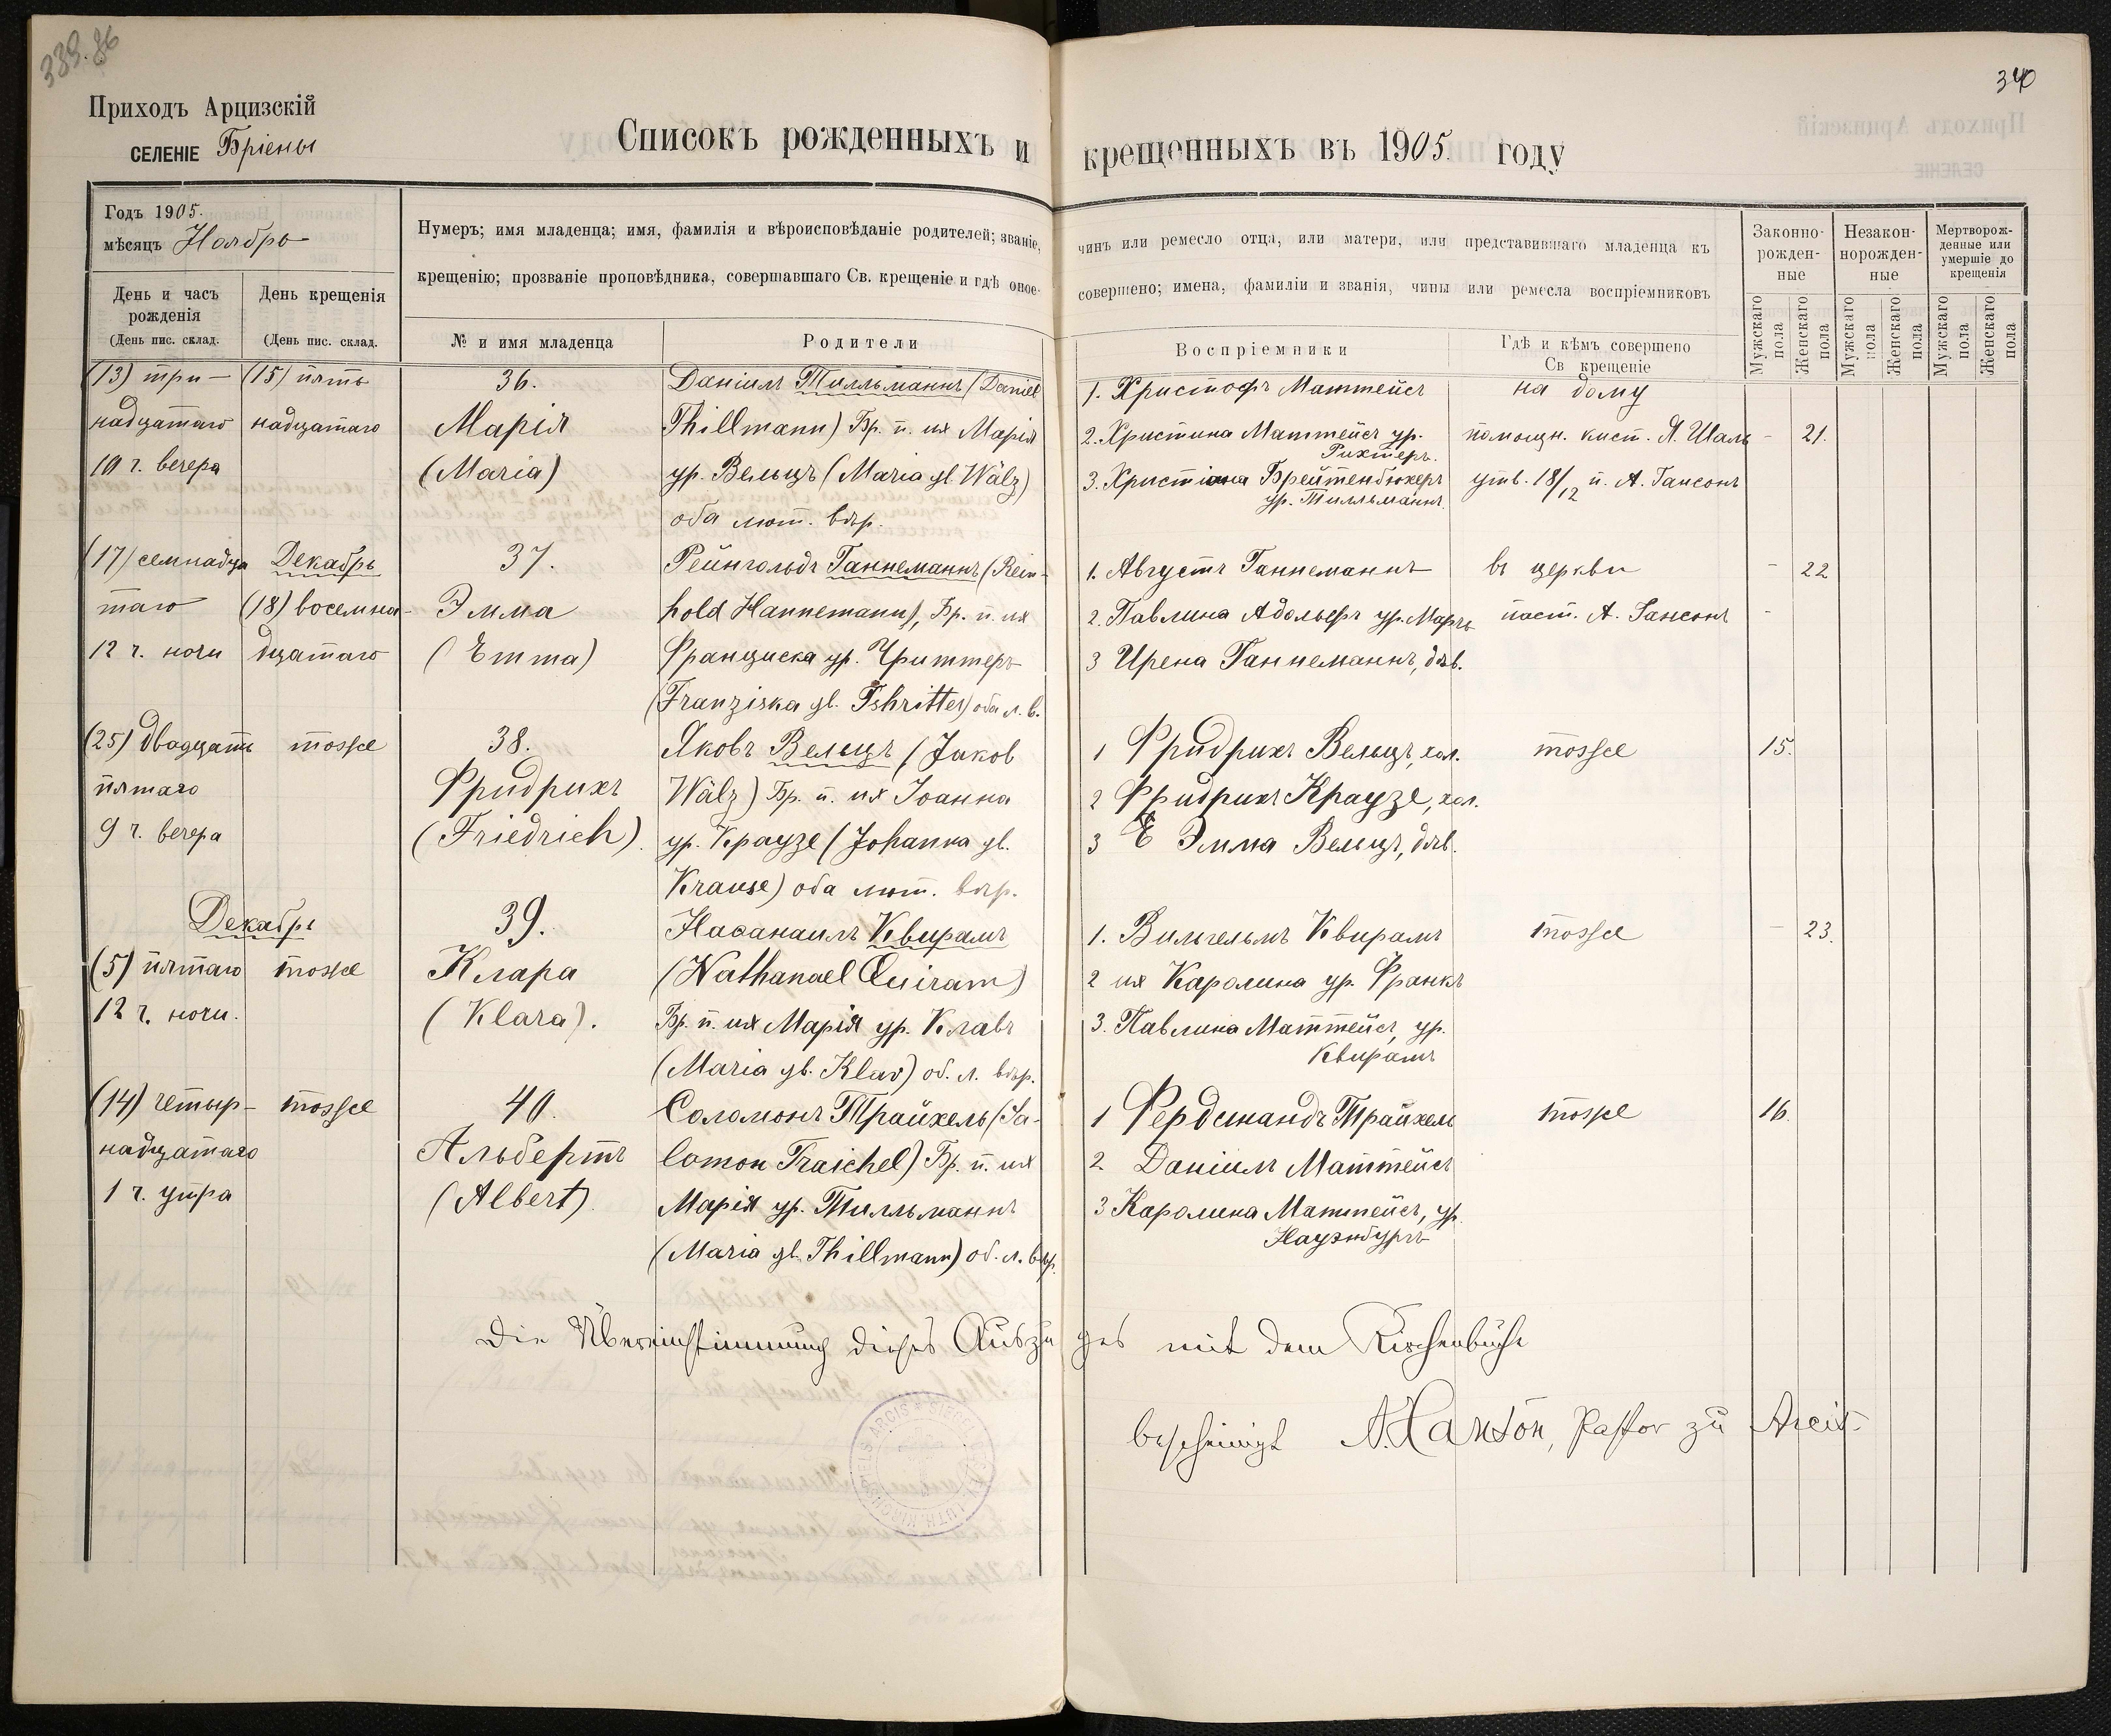 339.86
340
Приходъ Арцизскій
СЕЛЕНІЕ Бріены
Списокъ рожденныхъ и крещенныхъ въ 1905. году
Годъ 1905.
мѣсяцъ Ноябрь
День и часъ
рожденія
(День пис. склад.
День крещенія
(День пис. склад.
Нумеръ; имя младенца; имя, фамилія и вѣроисповѣданіе родителей; званіе, чинъ или ремесло отца, или матери, или представившаго младенца къ
крещенію; прозваніе проповѣдника, совершавшаго Св. крещеніе и гдѣ оное совершено; имена, фамиліи и званія, чины или ремесла воспріемниковъ
№ и имя младенца
Родители
Воспріемники
Гдѣ и кѣмъ совершено
Св крещеніе
Законно-
рожден-
ные
Незакон-
норожден-
ные
Мертворож-
денные или
умершіе до
крещенія
Мужскаго пола
Женскаго пола
Мужскаго пола
Женскаго пола
Мужскаго пола
Женскаго пола
(13) три-
надцатаго
10 г. вечера
(15) пять
надцатаго
36.
Марія
(Maria)
Даніилъ Тилльманнъ (Daniel
Thillmann) Бр. п. их Марія
ур. Вельцъ (Maria gb. Wälz)
оба лют. вѣр.
1. Христофъ Маттейсъ
2. Христина Маттейсъ ур.
Рихтеръ.
3. Христіана Брейтенбюхеръ
ур. Тилльманнъ.
на дому
помощн. кист. Я. Шаль
утв. 18/12 п. А. Гансонъ
- 21.
(17) семнадца
таго
12 ч. ночи
Декабрь
(18) восемна-
дцатаго
37.
Эмма
(Emma)
Рейнгольдъ Ганнеманнъ (Rein-
hold Hannemann), Бр. п. их
Франциска ур. Чриттеръ
(Franziska gb. Tshritter) оба л. в.
1. Августъ Ганнеманнъ
2. Павлина Адольфъ ур. Марть
3 Ирена Ганнеманнъ, дѣв.
въ церкви
паст. А. Гансонъ
- 22
-
(25) двадцать
пятаго
9 ч. вечера
тоssе
38.
Фридрихъ
(Friedrich)
Яковъ Вельцъ (Jakob
Wälz) Бр. п. их Іоанна
ур. Краузе (Johanna gb.
Krause) оба лют. вѣр.
1 Фридрихъ Вельцъ, хол.
2 Фридрихъ Краузе, хол.
3 Эмма Вельцъ, дѣв.
тоssе
15.
Декабрь
(5) пятаго
12 ч. ночи.
тоssе
39.
Клара
(Klara).
Наѳанаилъ Квирамъ
(Nathanael Quiram)
Бр. п. их Марія ур. Клавъ
(Maria gb. Klav) об. л. вѣр.
1. Вильгельмъ Квирамъ
2 их Каролина ур. Франкъ
3. Павлина Маттейсъ, ур.
Квирамъ
тоssе
- 23.
(14) четыр-
надцатаго
1 ч. утра
тоssе
40.
Альбертъ
(Albert)
Соломонъ Трайхель (Sa-
lomon Traichel) Бр. п. их
Марія ур. Тилльманнъ
(Maria gb. Thillmann) об. л. вѣр.
1 Фердинандъ Трайхель
2 Даніилъ Маттейсъ
3 Каролина Маттейсъ, ур.
Науэнбургъ
тоssе
16.
Die Übereinstimmung dieses Auszuges mit dem Kirchenbuche
bescheinigt A. Hanson, Pastor zu Arcis